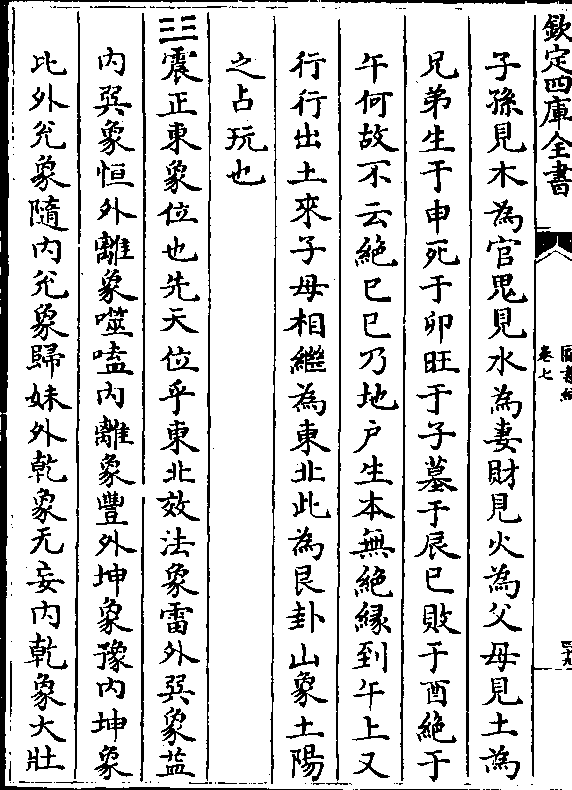 欽定四庫全書
圖書編
卷七
子孫見木為官鬼見水為妻財見火為父母見土為
兄弟生于申死于卯旺于子墓于辰巳敗于酉絶于
午何故不云絶巳巳乃地户生本無絶縁到午上又
行行出土來子母相繼為東北此為艮卦山象土陽
之占玩也
☳震正東象位也先天位乎東北效法象雷外巽象益
内巽象恒外離象噬嗑内離象豐外坤象豫内坤象
比外兊象隨内兊象歸妹外乾象无妄内乾象大壯